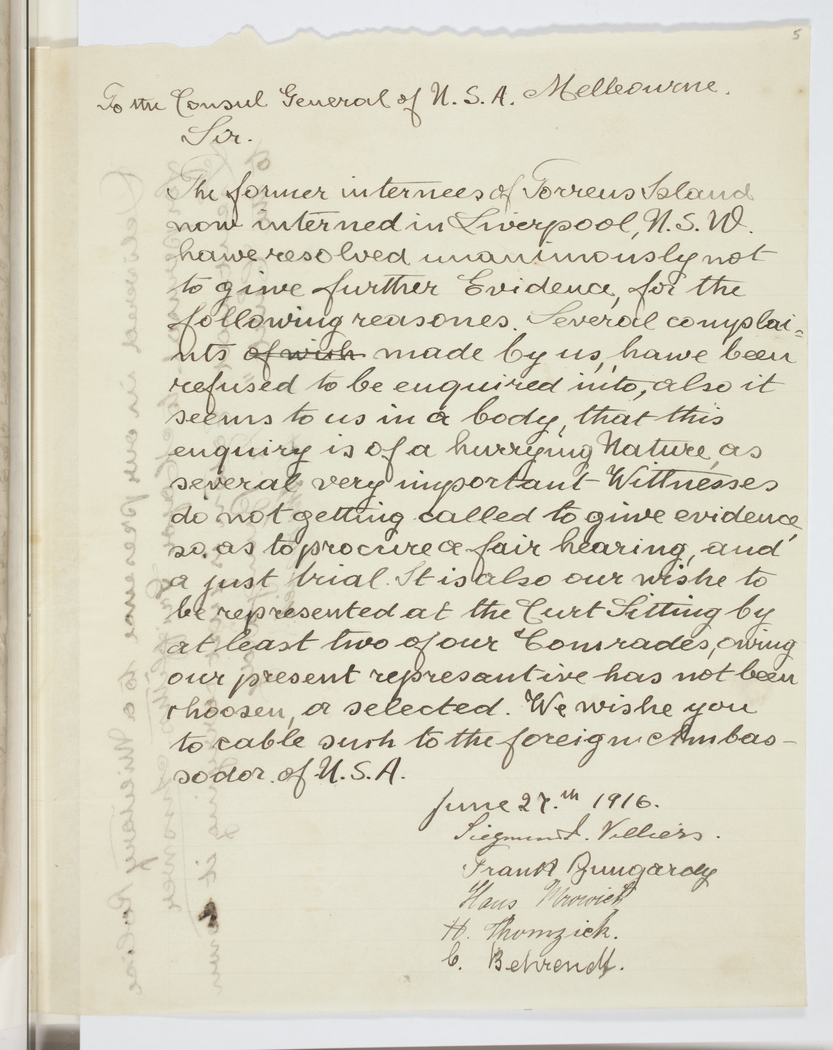 5
To the Consul General of U.S.A. Melbourne.
Sir.
The former internees of Torrens Island
now interned in Liverpool, N.S.W.
have resolved unanimously not
to give further Evidence, for the
following reasones. Several complai=
nts of wish made by us, have been
refused to be enquired into, also it
seems to us in a body, that this
enquiry is of a hurrying Nature, as
several very important Wittnesses
do not getting called to give evidence,
so as to procure a fair hearing, and
a just trial. It is also our wishe to
be represented at the Curt Sitting by
at least two of our Comrades, owing
our present represantive has not been
choosen, or selected. We wishe you
to cable such to the foreign Ambas-
sodor of U.S.A.
June 27.th 1916.
Siegmund. Villiers.
Frank Bungardy
Hans
H. Thomzick.
C. Behrendt.